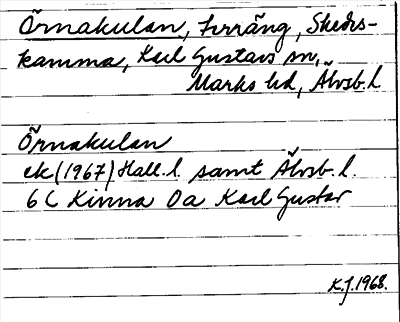 Örnakulan, terräng, Skeders-
kamma, Karl Gustavs sn,
Marks hd, Älvsb. l
Örnakulan
ek (1967) Hall. l. samt Älvsb. l.
6 C Kinna 0a Karl Gustav
K.J. 1968.